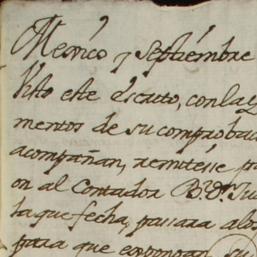 Mexico y Septiembre
Visto este escrito, con la
mentos de su comproba
acompañan, remitese p
on al Contador
ha que fecha, passara a los
para que expongan, su